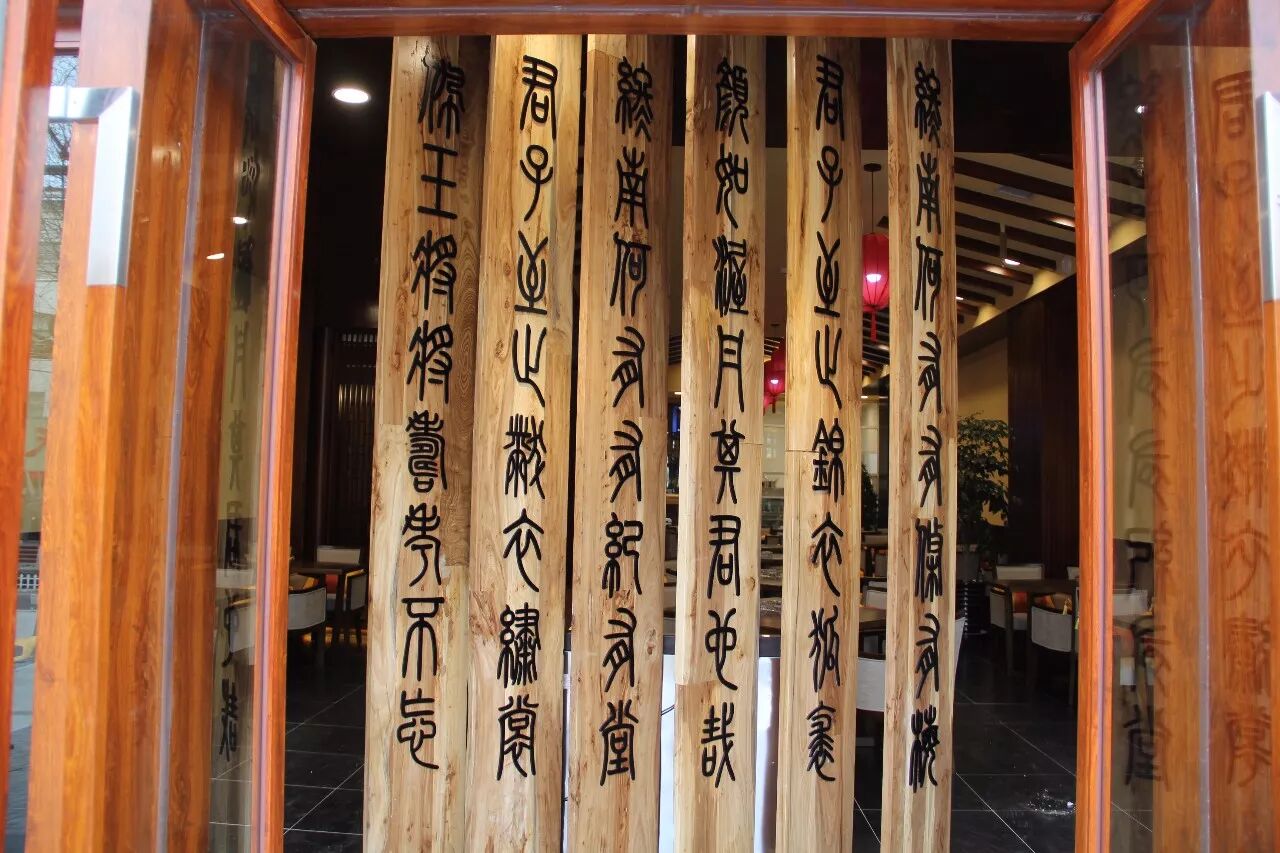 終南何有有條有梅
君子至止錦衣狐裘
顏如渥丹其君也哉
終南何有有紀有堂
君子至止黻衣繡裳
佩玉將將壽考不忘